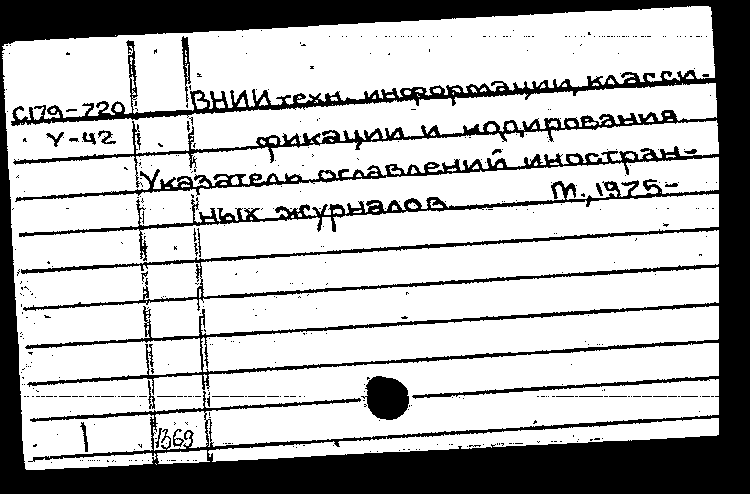 С179-720 ВНИИ техн. информации, класси-
У-42 фикации и кодирования
Указатель оглавлений иностран-
ных журналов М., 1975-
1 1369